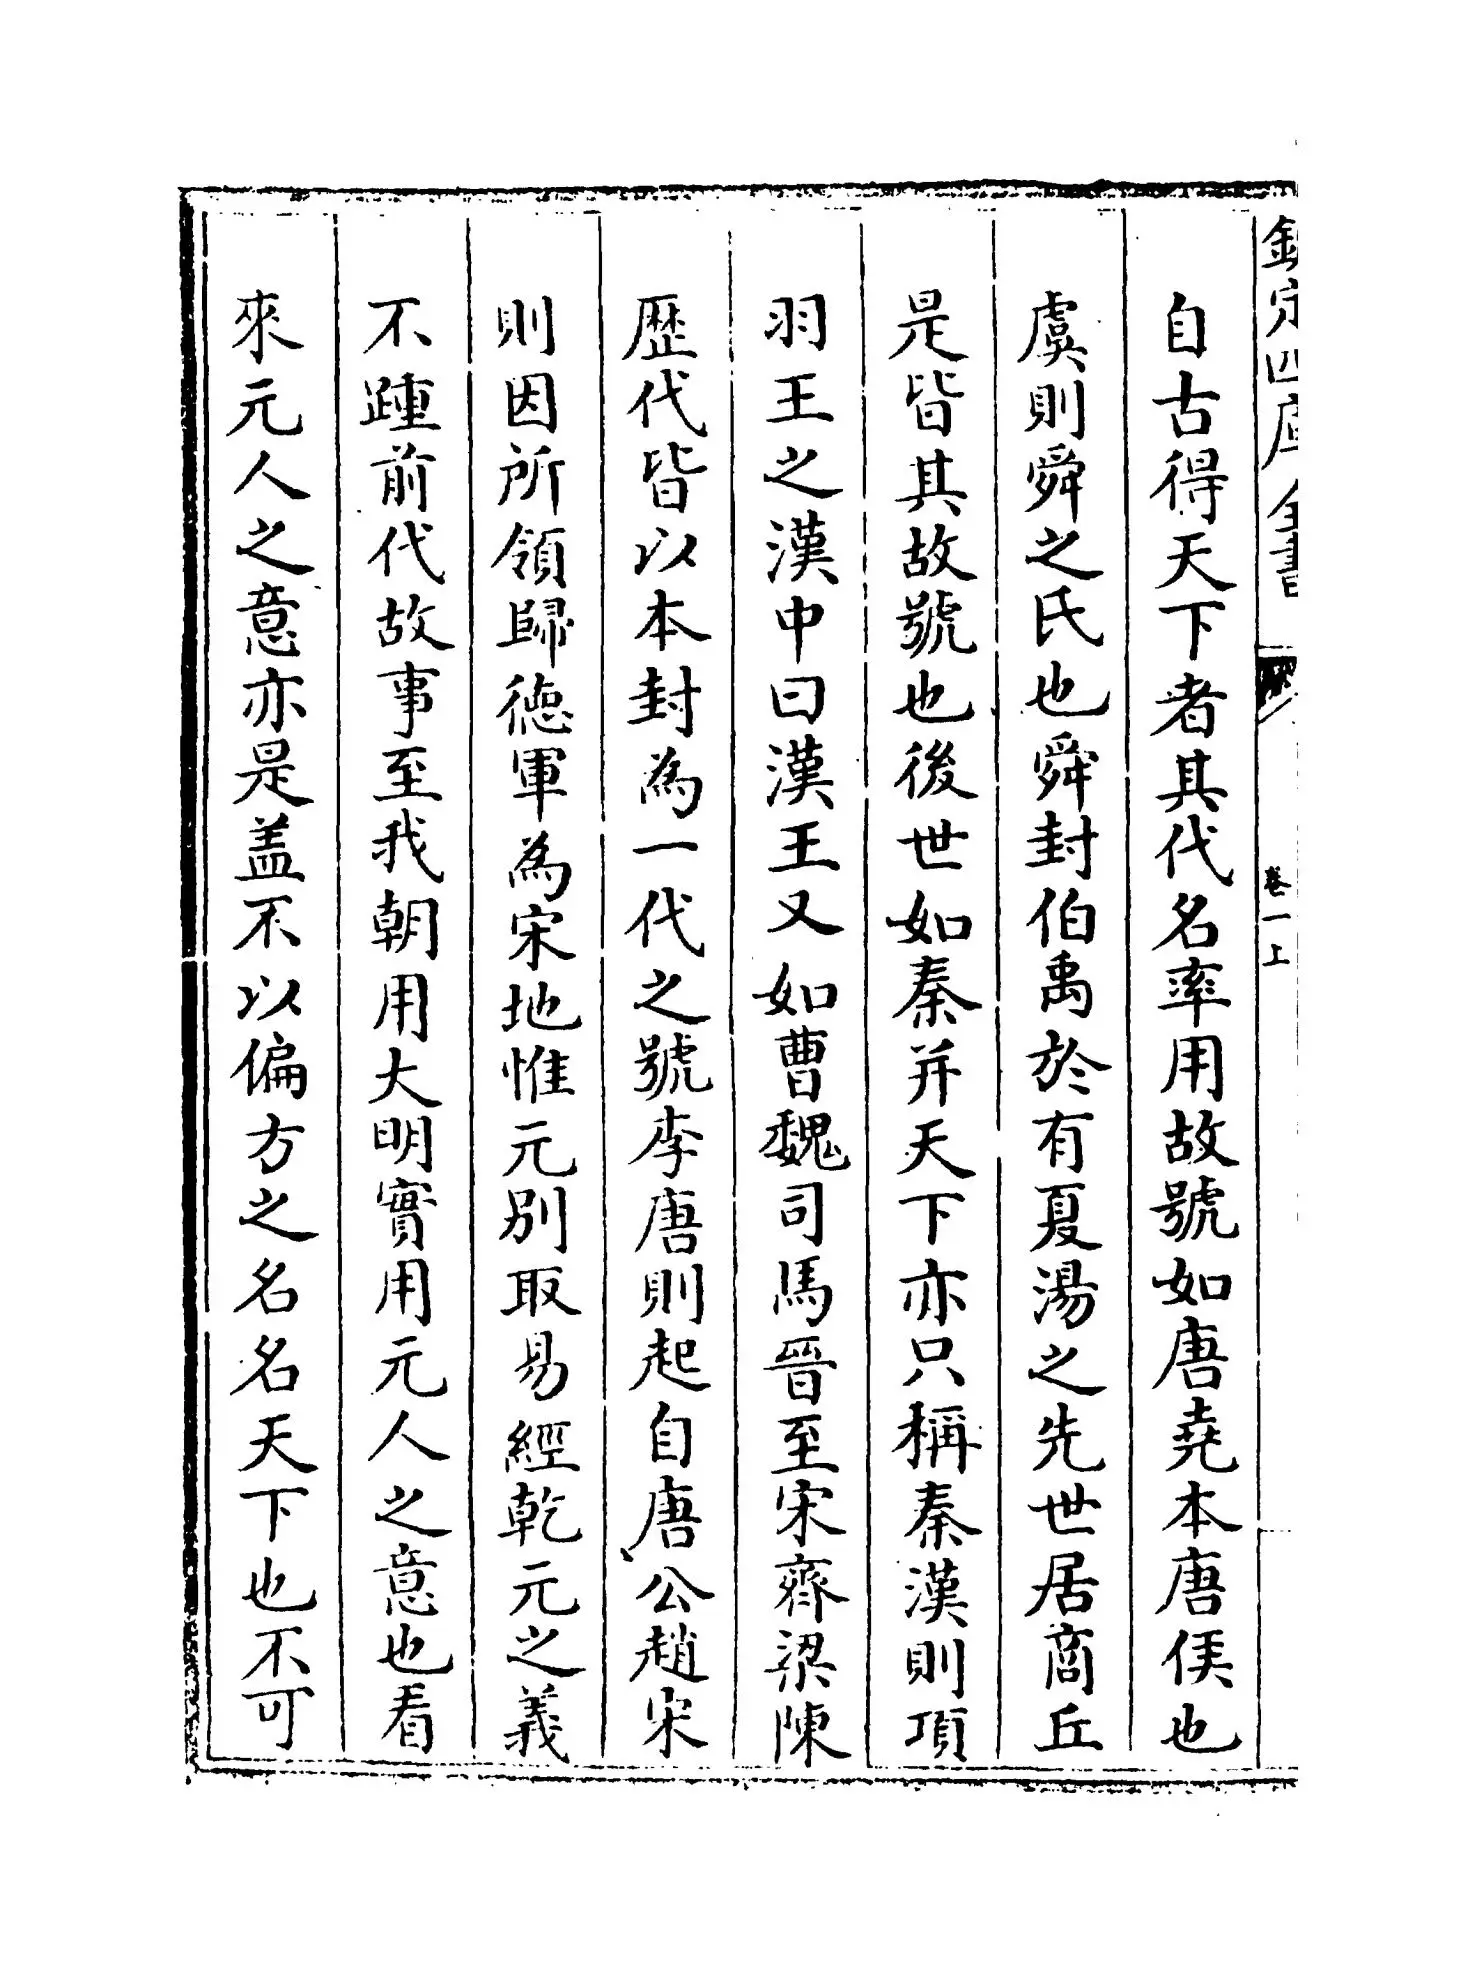 欽定四庫全書
卷一上
自古得天下者其代名率用故號如唐堯本唐侯也
虞則舜之氏也舜封伯禹於有夏湯之先世居商丘
是皆其故號也後世如秦并天下亦只稱秦漢則項
羽王之漢中曰漢王又如曹魏司馬晉至宋齊梁陳
歴代皆以本封為一代之號李唐則起自唐公趙宋
則因所領歸徳軍為宋地惟元别取易經乾元之義
不踵前代故事至我朝用大明實用元人之意也看
來元人之意亦是盖不以偏方之名名天下也不可